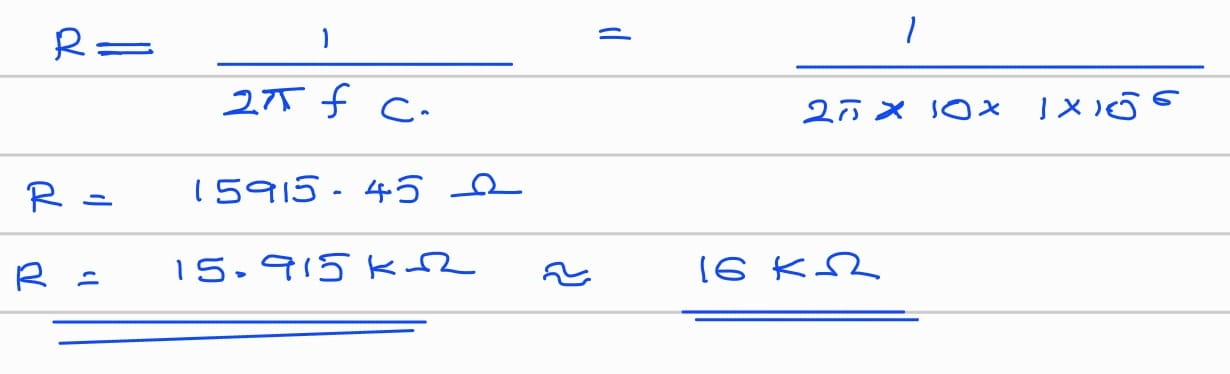 R = 1 / 2π f C. = 1 / 2π × 10 × 1 × 10⁻⁶
R = 15915.45 Ω
R = 15.915 kΩ ≈ 16 KΩ